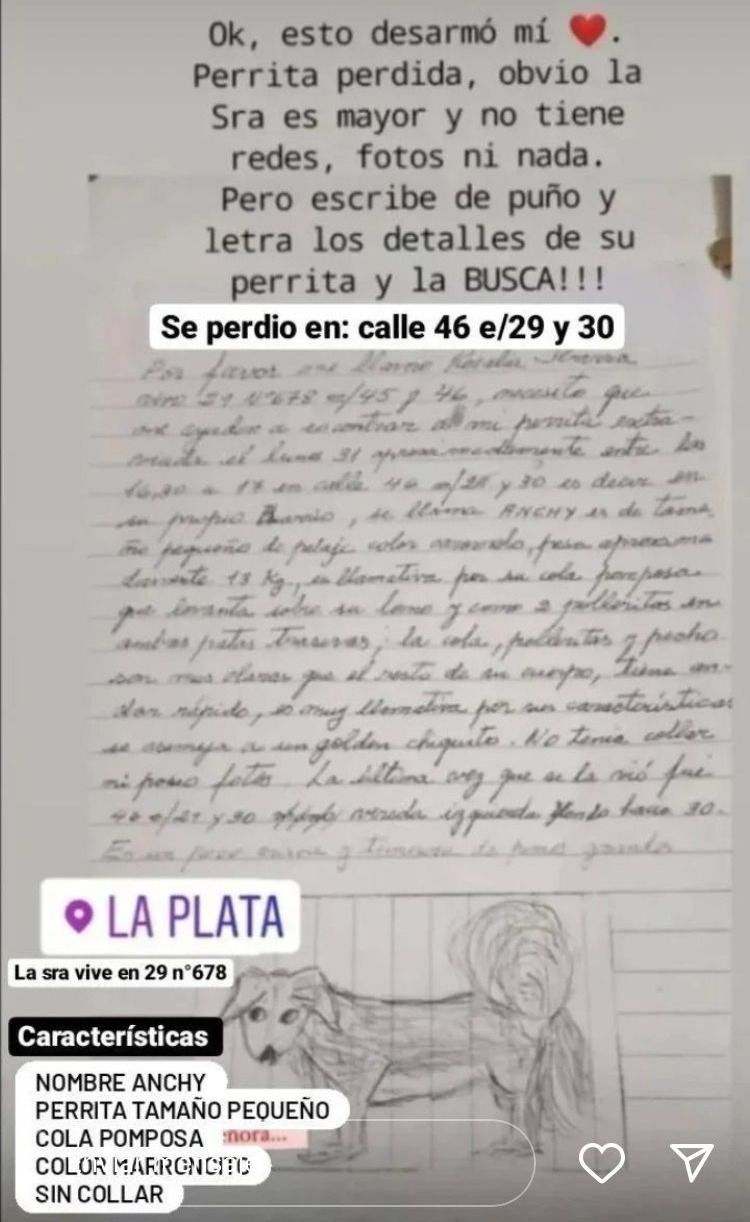 Ok, esto desarmó mí ❤️.
Perrita perdida, obvio la
Sra es mayor y no tiene
redes, fotos ni nada.
Pero escribe de puño y
letra los detalles de su
perrita y la BUSCA!!!
Se perdio en: calle 46 e/29 y 30
Por favor me llamo
29 N°678 e/45 y 46, necesito que
me ayuden a encontrar a mi perrita extra-
viada el lunes 31 aproximadamente entre las
16,30 a 17 en calle 46 y 30 es decir en
su propio Barrio, se llama ANCHY es de tama
ño pequeño de pelaje color, pesa aproxima
damente 13 Kg, es llamativa por su cola pomposa
que levanta sobre su lomo y como 2 polleritas en
ambas patas traseras; la cola, polleritas y pecho
son mas claras que el resto de su cuerpo, tiene an-
dar rápido, es muy llamativa por sus características
se asemeja a un golden chiquito. No tenía collar
ni poseo fotos. La última vez que se la vió fué
46 e/29 y 30 vereda izquierda yendo hacia 30.
LA PLATA
La sra vive en 29 n°678
Características
NOMBRE ANCHY
PERRITA TAMAÑO PEQUEÑO
COLA POMPOSA
nora...
COLOR MARRONCITO
SIN COLLAR